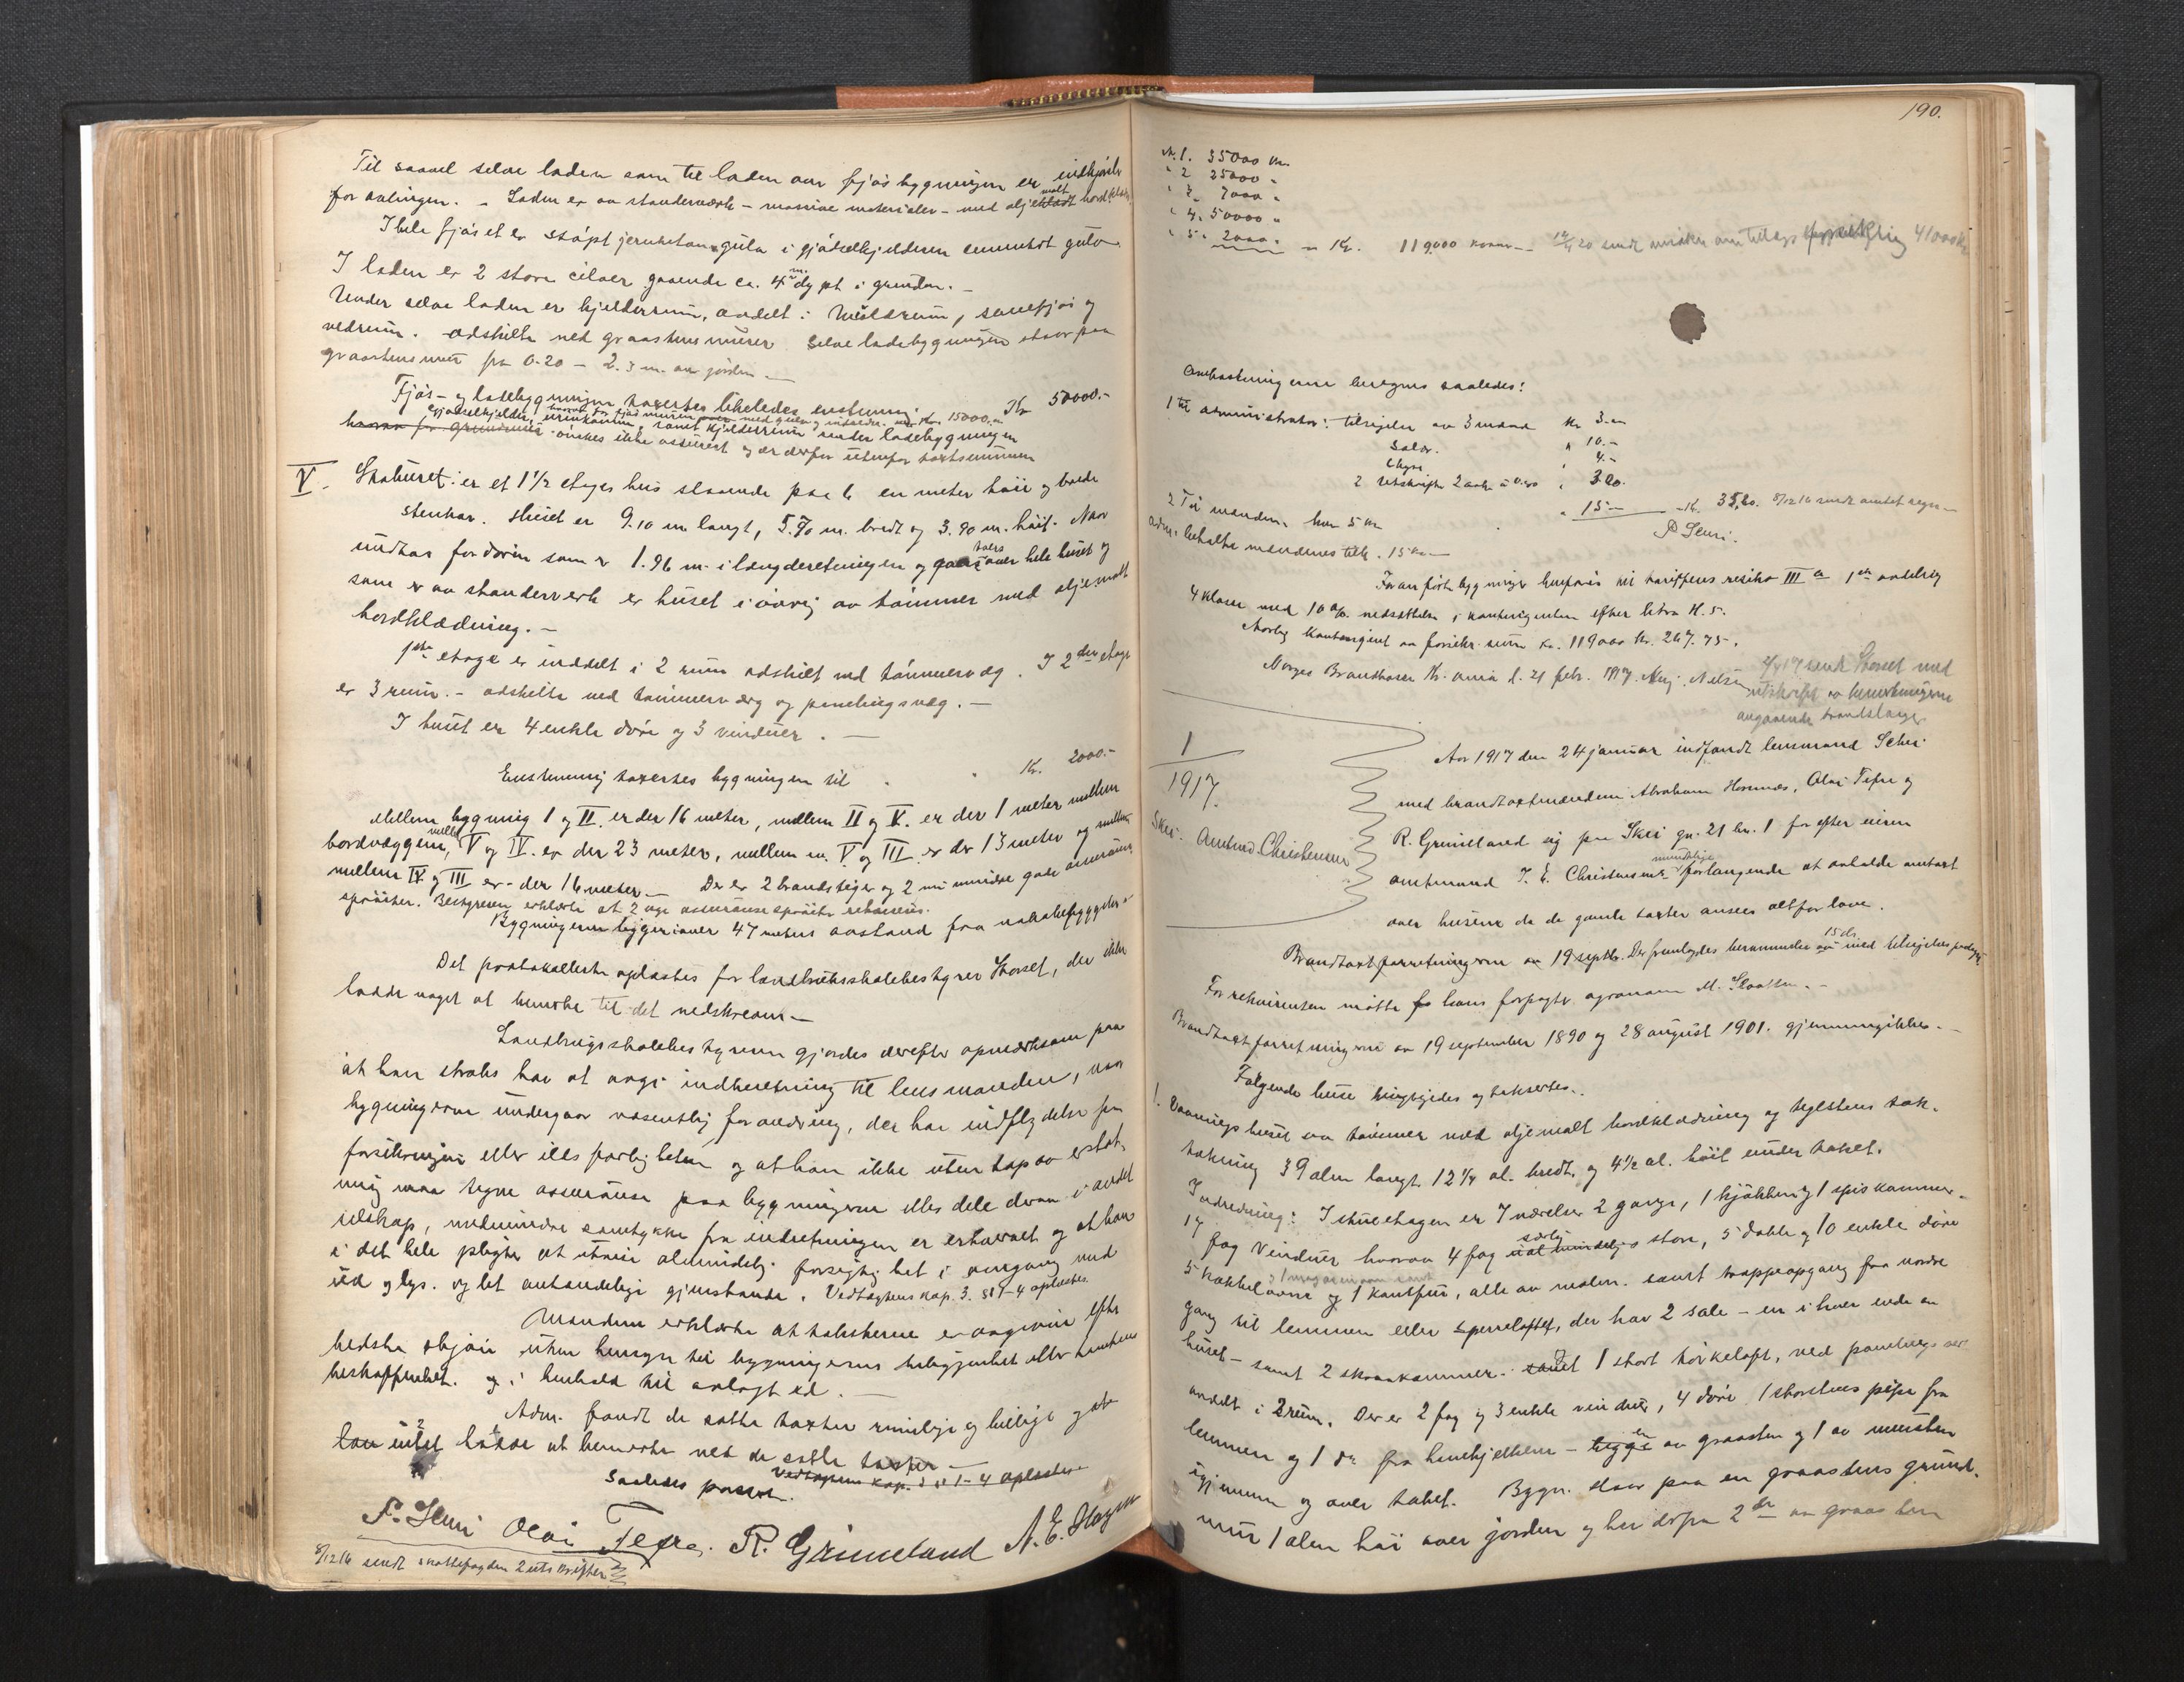 Til saavel selve laden som til laden over fjøsbygningen er indkjørsle
for avlingen. - Laden er av standerværk - massive materialer - med oljemalt bordklædn.
I hele fjøset er støpt jernbetongulv i gjødselkjelderen cementert gulv
I laden er 2 store siloer gaaende ca. 4 m. dypt i grunden. -
Under selve laden er kjelderrum, avdelt i , sauefjøs og
vedrum. adskilte ved graastensmurer Selve ladebygningen staar paa
graastensmur fra 0.20 - 2.3 m. over jorden. -
Fjøs- og ladebygningen taxertes likeledes enstemmig Kr 50000.-
gjødselkjelder, urinkummer, samt kjelderrum under ladebygningen Kr. 15000.-
ønskes ikke assurert og er derfor utenfor taxtsummen
V. Staburet: er et 1 1/2 etages hus staaende paa 6 en meter høie og brede
stenkar. Huset er 9.10 m langt, 5.70 m. bredt og 3.90 m. høit. Naar
undtas fordøren som er 1.96 m. i længderetningen og gaar tvers over hele huset og
som er av standerverk er huset i øvrig av tømmer med oljemalt
bordklædning. -
1ste etage er inddelt i 2 rum adskilt ved tømmervæg. I 2den etage
er 3 rum. - adskilte ved tømmervæg og panelingsvæg. -
I huset er 4 enkle døre og 3 vinduer. -
Enstemmig taxertes bygningen til Kr. 2000.-
Mellem bygning I og II er der 16 meter, mellem II og V. er der 1 meter mellem
bordvæggene, mellem V og IV. er der 23 meter, mellem nr. V og III er der 13 meter og mellem
mellem IV og III er der 16 meter. - Der er 2 brandstiger og 2 nu mindre gode assurance
sprøiter. Bestyreren erklærte at 2 nye assurancesprøiter rekvireres.
Bygningerne ligger i over 47 meters avstand fra nabobebyggelse
Det protokollerte oplæstes for landbruksskolebestyrer Storset, der ikke
hadde noget at bemerke til det nedskrevne. -
Landbrugsskolebestyreren gjordes derefter opmerksom paa
at han straks har at avgi indberetning til lensmanden, naar
bygningerne undergaar væsentlig forandring, der har indflydelse paa
forsikringen eller ildsfarligheten og at han ikke uten tap av erstat-
ning maa tegne assurance paa bygningerne eller dele derav i andet
selskap, medmindre samtykke fra indretningen er erhvervet og at han
i det hele pligter at utvise almindelig forsigtighet i omgang med
ild og lys. og let antændelige gjenstande. Vedtægtens kap. 3. § 1-4 oplæstes.
Mændene erklærte at taksterne er avgivne efter
bedste skjøn uten hensyn til bygningernes beliggenhet eller
beskaffenhet. og i henhold til avlagt ed. -
Adm. fandt de satte taxter rimelige og billige og at
han intet hadde at bemerke ved de satte taxter -
Vedtægtens kap. 3 § 1-4 oplæstes
Saaledes passert.
P. Senri Olai Tefre. R. Grimeland A. E. Hagen
8/12 16 sendt skattefogden 2 utskrifter
190.
Nr. 1. 35000 kr.
" 2 25000 -
" 3 7000 -
" 4. 50000 -
" 5 2000 -
= Kr. 119000 kroner -
41000 kr
Omkostningerne beregnes saaledes:
1 til administrator: tilsigelse av 3 mænd kr 3.-
Salær. " 10.-
Skyss " 4.-
2 utskrifter 2 ark à 0.80 " 3.20.
2 Til mændene hver 5 kr " 15 - = Kr. 35.20. 8/12 16 sendt amtet regn -
adm. betalte mændenes tilk. 15 kr - P Senri.
Foranførte bygninger henføres til tariffens risiko III a 1ste avdeling
4 klasse med 10 % nedsættelse i kontingenten efter litra H. 5.
Aarlig kontingent av forsikr. sum kr. 119000 kr. 267.75.
Norges Brandkasse Kr.ania d. 21 febr. 1917. Aug. Nilsen
sendt Storset med
utskrift av bemerkningerne
angaaende brandstiger
1
1917.
Skei. Amtmd. Christensen
Aar 1917 den 24 januar indfandt lensmand Schei
med brandtaxtmændene Abraham Hornnes, Olai Tefre og
R. Grimeland sig paa Skei gn. 21 bn. 1 for efter eieren
amtmand I. E. Christensens mundtlige forlangende at avholde omtaxt
over husene da de gamle taxter ansees altfor lave.
Brandtaxtforretningerne av 19 septb. Der fremlagdes berammelse av 15 ds. med tilsigelsespaategn.
For rekvirenten møtte hans forpagter agronom M. Slaatten. -
Brandtaxtforretningerne av 19 september 1890 og 28 august 1901. gjennemgikkes. -
Følgende huse besigtigedes og taksertes. -
1. Vaaningshuset av tømmer med oljemalt bordklædning og teglstens tak-
tækning 39 alen langt 12 1/4 al. bredt. og 4 1/2 al. høit under taket.
Indredning: I stueetagen er 7 værelser 2 gange, 1 kjøkken og 1 spiskammer.
17 fag vinduer hvorav 4 fag særlig store, 5 doble og 10 enkle døre
5 kakkelovne og 1 komfur, alle av malm. samt trappeopgang fra nordre
gang til lemmen eller sperreloftet, der har 2 sale - en i hver ende av
huset - samt 2 skraakammer. 1 stort tørkeloft, ved panelings
avdelt i 2 rum. Der er 2 fag og 3 enkle vinduer, 4 døre 1 skorstens pipe fra
lemmen og 1 do fra kjelderen - en av graasten og 1 av mursten
igjennem og over taket. Bygn. staar paa en graastens grund-
mur 1 alen høi over jorden og har av graasten